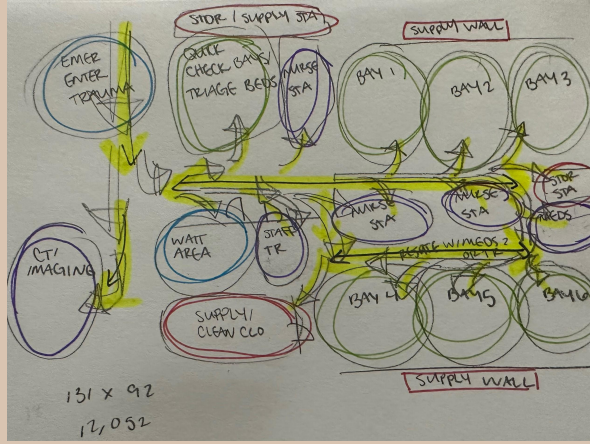 STOR / SUPPLY STA
SUPPLY WALL
EMER
ENTER
TRAUMA
QUICK
CHECK BAYS/
TRIAGE BEDS
NURSE
STA
BAY 1
BAY 2
BAY 3
STOR
STA
NURSE
STA
NURSE
STA
MEDS
WAIT
AREA
STAFF
TR
CT/
IMAGING
W/MEDS
SUPPLY/
CLEAN CLO
BAY 4
BAY 5
BAY 6
SUPPLY WALL
131 X 92
12,052